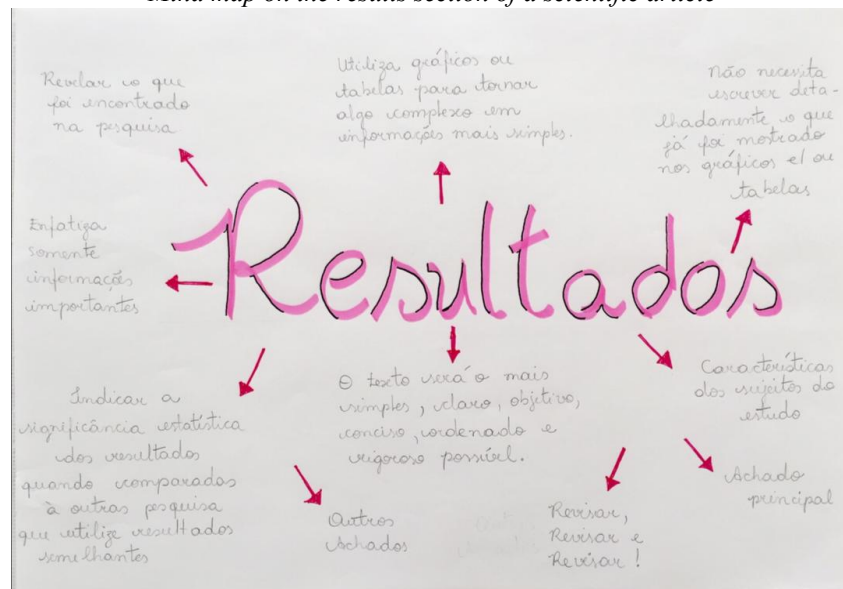 Mind map on the results section of a scientific article
Revelar o que
foi encontrado
na pesquisa
Utiliza gráficos ou
tabelas para tornar
algo complexo em
informações mais simples.
Não necessita
escrever deta-
lhadamente o que
já foi mostrado
nos gráficos e/ou
tabelas
Enfatiza
somente
informações
importantes
Resultados
Indicar a
significância estatística
dos resultados
quando comparados
à outras pesquisa
que utilize resultados
semelhantes
O texto será o mais
simples, claro, objetivo,
conciso, ordenado e
rigoroso possível.
Características
dos sujeitos do
estudo
Outros
Achados
Revisar,
Revisar e
Revisar!
Achado
principal